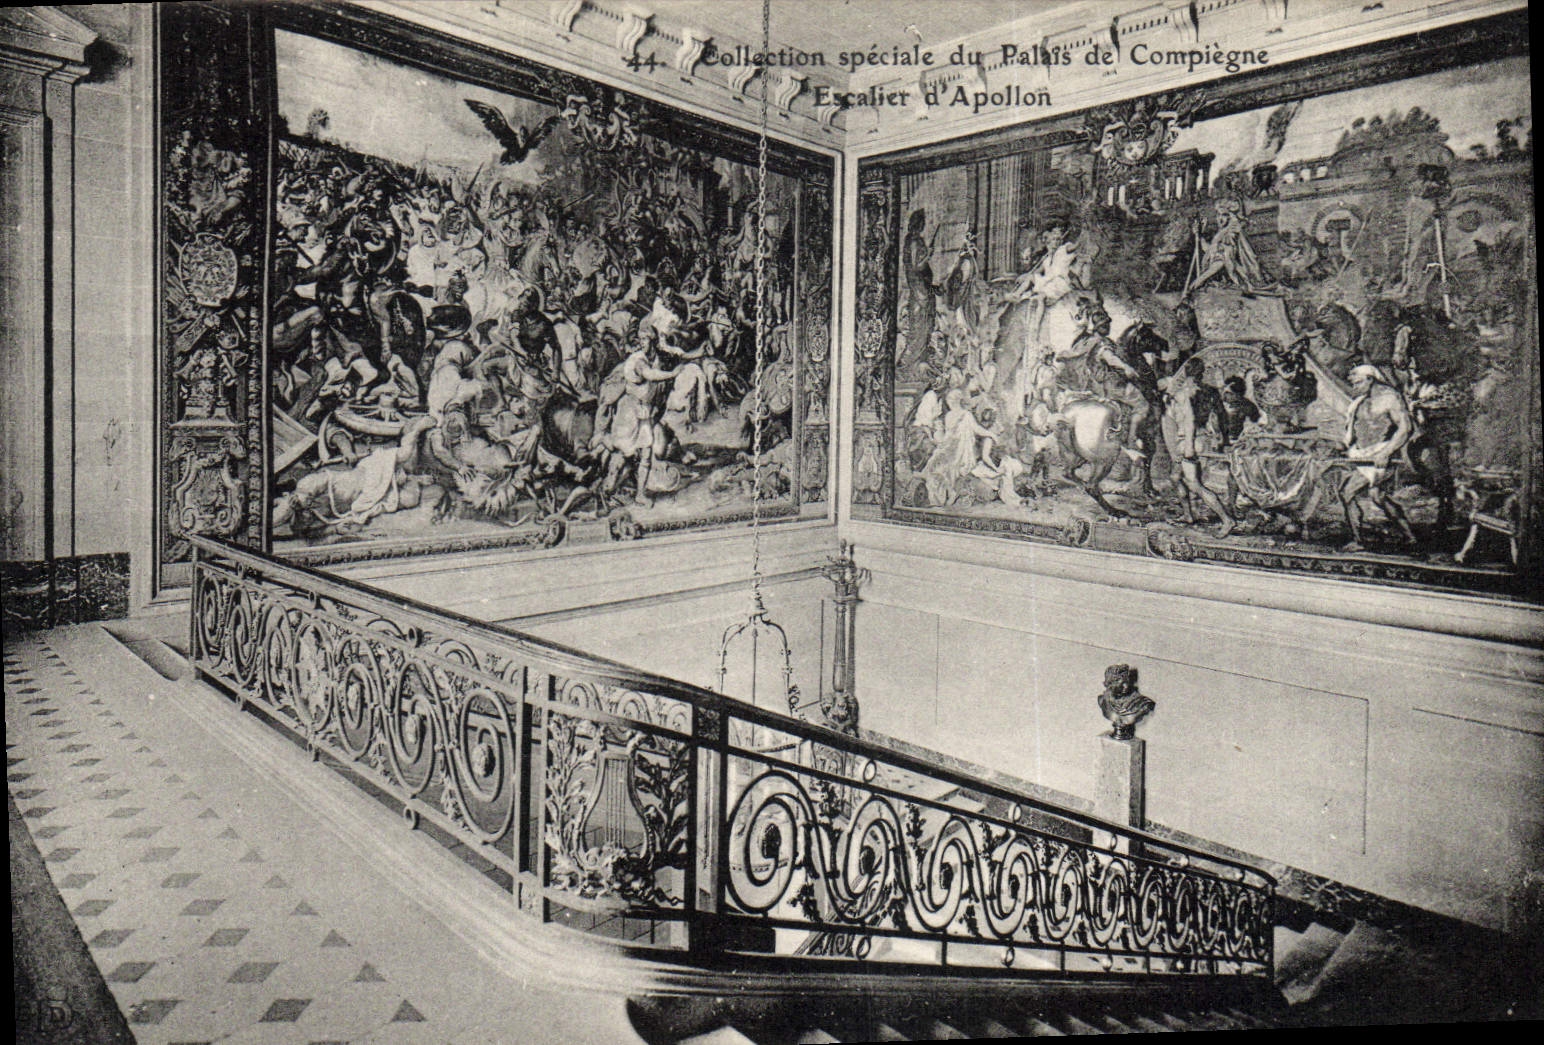 44. Collection spéciale du Palais de Compiègne
Escalier d'Apollon